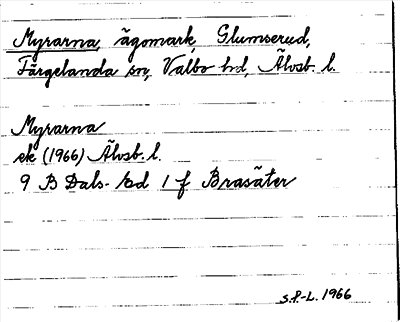 Myrarna, ägomark, Glumserud,
Färgelanda sn, Valbo hd, Älvsb. l.
Myrarna
ek (1966) Älvsb. l.
9 B Dals-Ed 1 f Brasäter
S.P-L. 1966